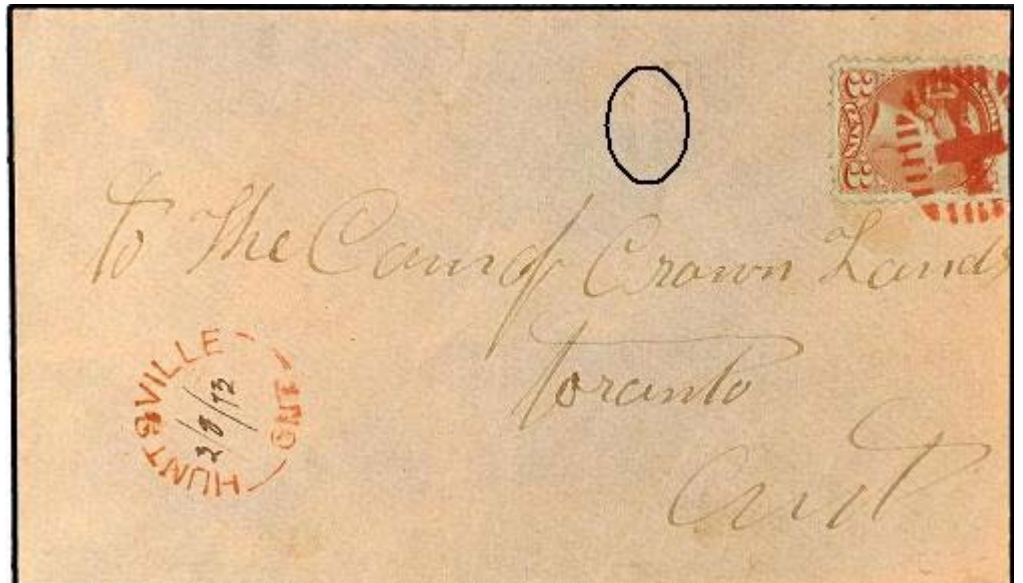 3 CENTS 3
To The Com of Crown Lands
Toronto
Ont
HUNTSVILLE
ONT
2/8/72